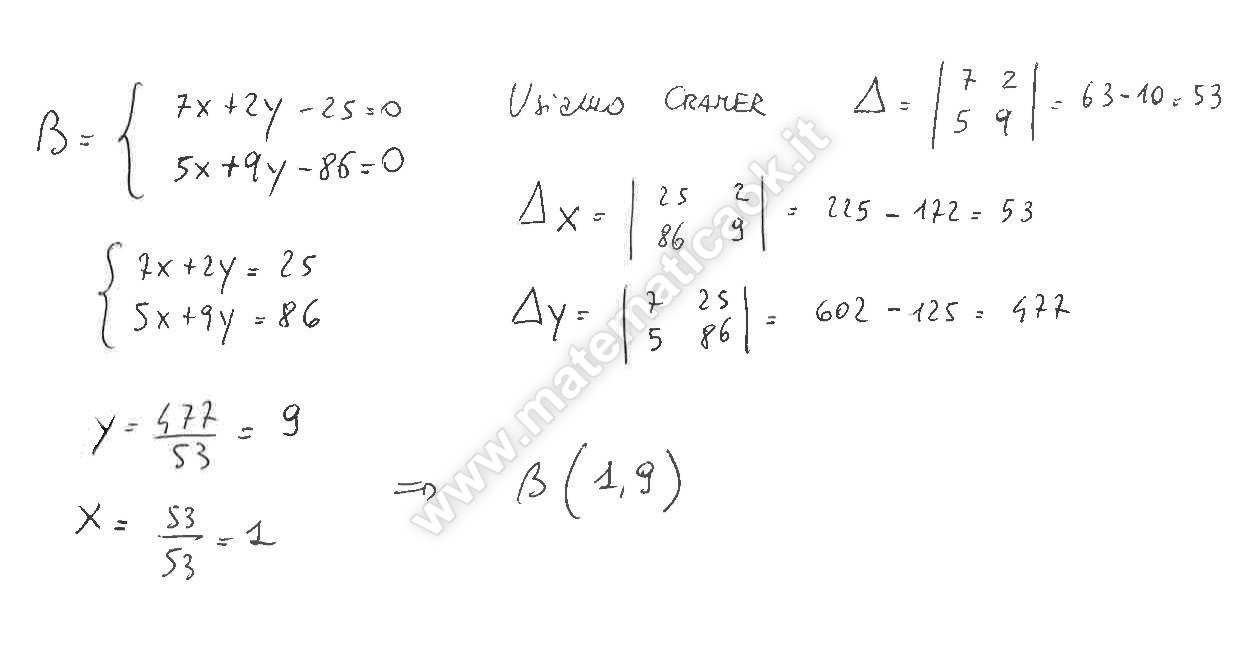 B = { 7x + 2y - 25 = 0
5x + 9y - 86 = 0
Usiamo CRAMER
Δ = | 7 2 | = 63 - 10 = 53
| 5 9 |
Δx = | 25 2 | = 225 - 172 = 53
| 86 9 |
{ 7x + 2y = 25
5x + 9y = 86
Δy = | 7 25 | = 602 - 125 = 477
| 5 86 |
y = 477/53 = 9
x = 53/53 = 1
⇒ B (1, 9)
www.matematicaok.it